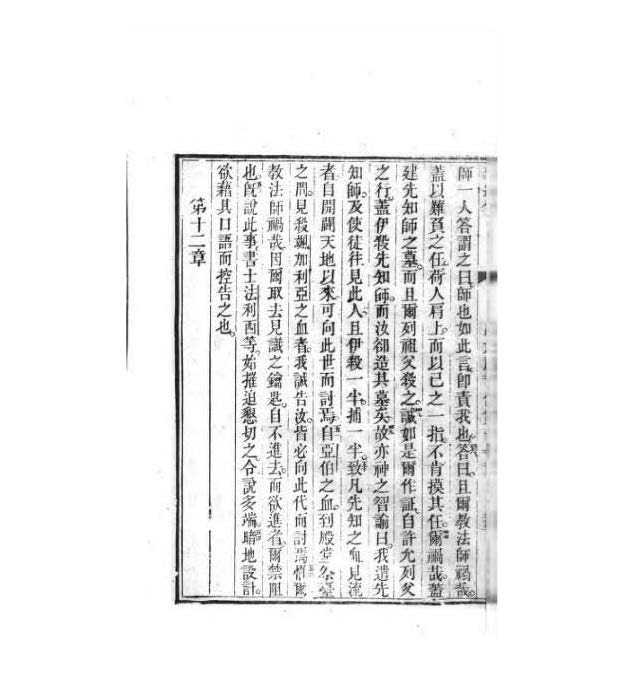 師一人答謂之曰。師也如此言。卽責我也。答曰。且爾教法師禍哉。
蓋以難負之任荷人肩上。而以己之一指不肯摸其任。爾禍哉。蓋
建先知師之墓。而且爾列祖父殺之。誠如是爾作証。自許允列父
之行。蓋伊殺先知師。而汝卻造其墓矣。故亦神之智諭曰。我遣先
知師。及使徒往見此人。且伊殺一半。捕一半。致凡先知之血見流
者。自開闢天地以來。可向此世而討焉。自亞伯之血。到殿堂祭臺
之間見殺颯加利亞之血者。我誠告汝。皆必向此代而討焉。惜爾
教法師禍哉。因爾取去見識之鑰匙。自不進去。而欲進者。爾禁阻
也。旣說此事。書士法利西等。始摧迫懇切之。令說多端。暗地設計。
欲藉其口語而控告之也。
第十二章